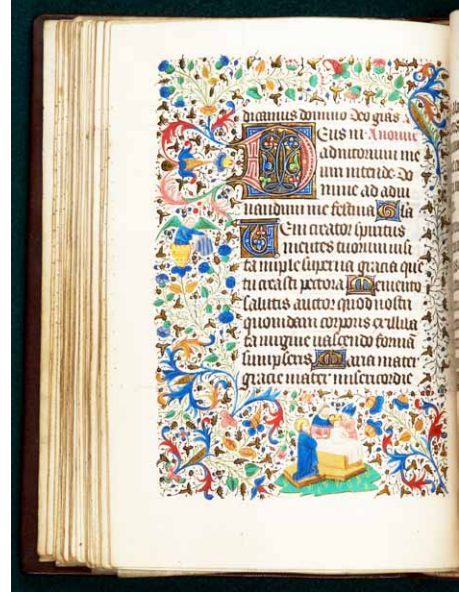 dicamus domino Deo gras
Deus in
adiutorium me
um intende Do
mine ad adiu
uandum me festina Gla
Veni creator spiritus
mentes tuorum uisi
ta imple superna gracia que
tu creasti pectora Memento
salutis auctor quod nostri
quondam corporis ex illiba
ta uirgine nascendo formā
sumpseris Maria mater
gracie mater misericordie